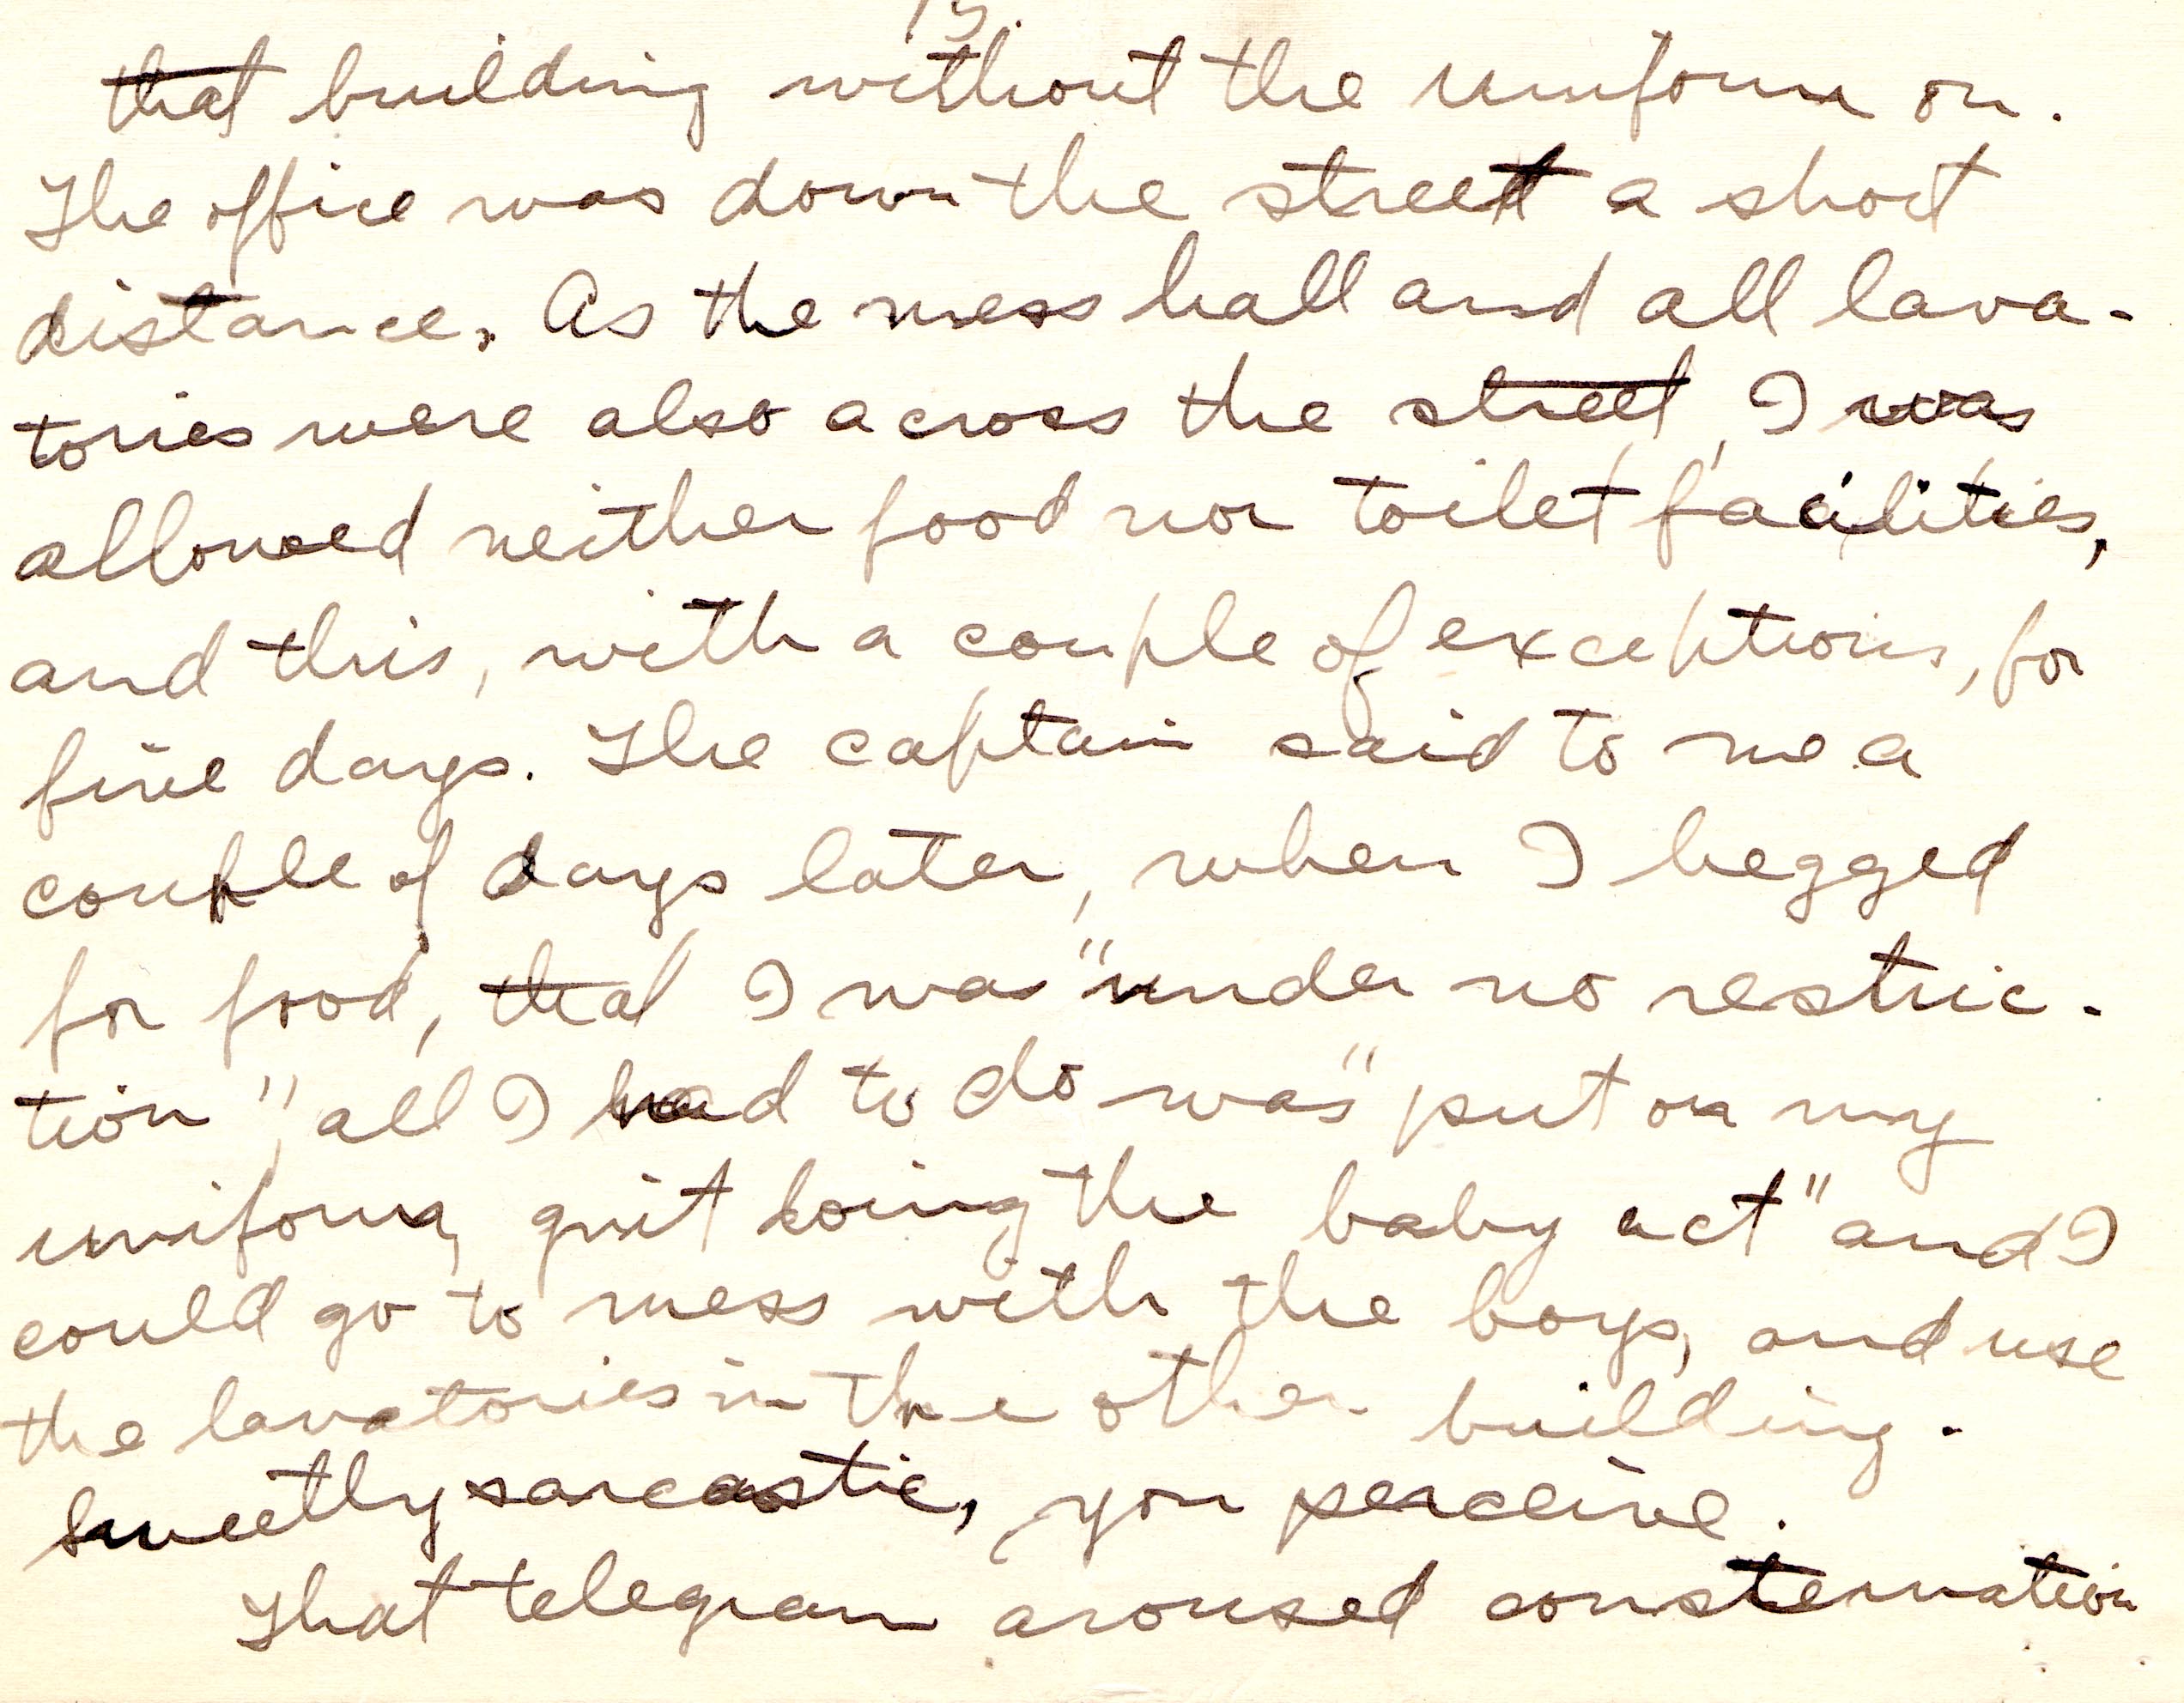 15.
that building without the uniform on.
The office was down the street a short
distance. As the mess hall and all lava-
tories were also across the street, I was
allowed neither food nor toilet facilities,
and this, with a couple of exceptions, for
five days. The captain said to me a
couple of days later, when I begged
for food, that I was "under no restric-
tion", all I had to do was "put on my
uniform, quit doing the baby act" and I
could go to mess with the boys, and use
the lavatories in the other building.
Sweetly sarcastic, you perceive.
That telegram aroused consternation